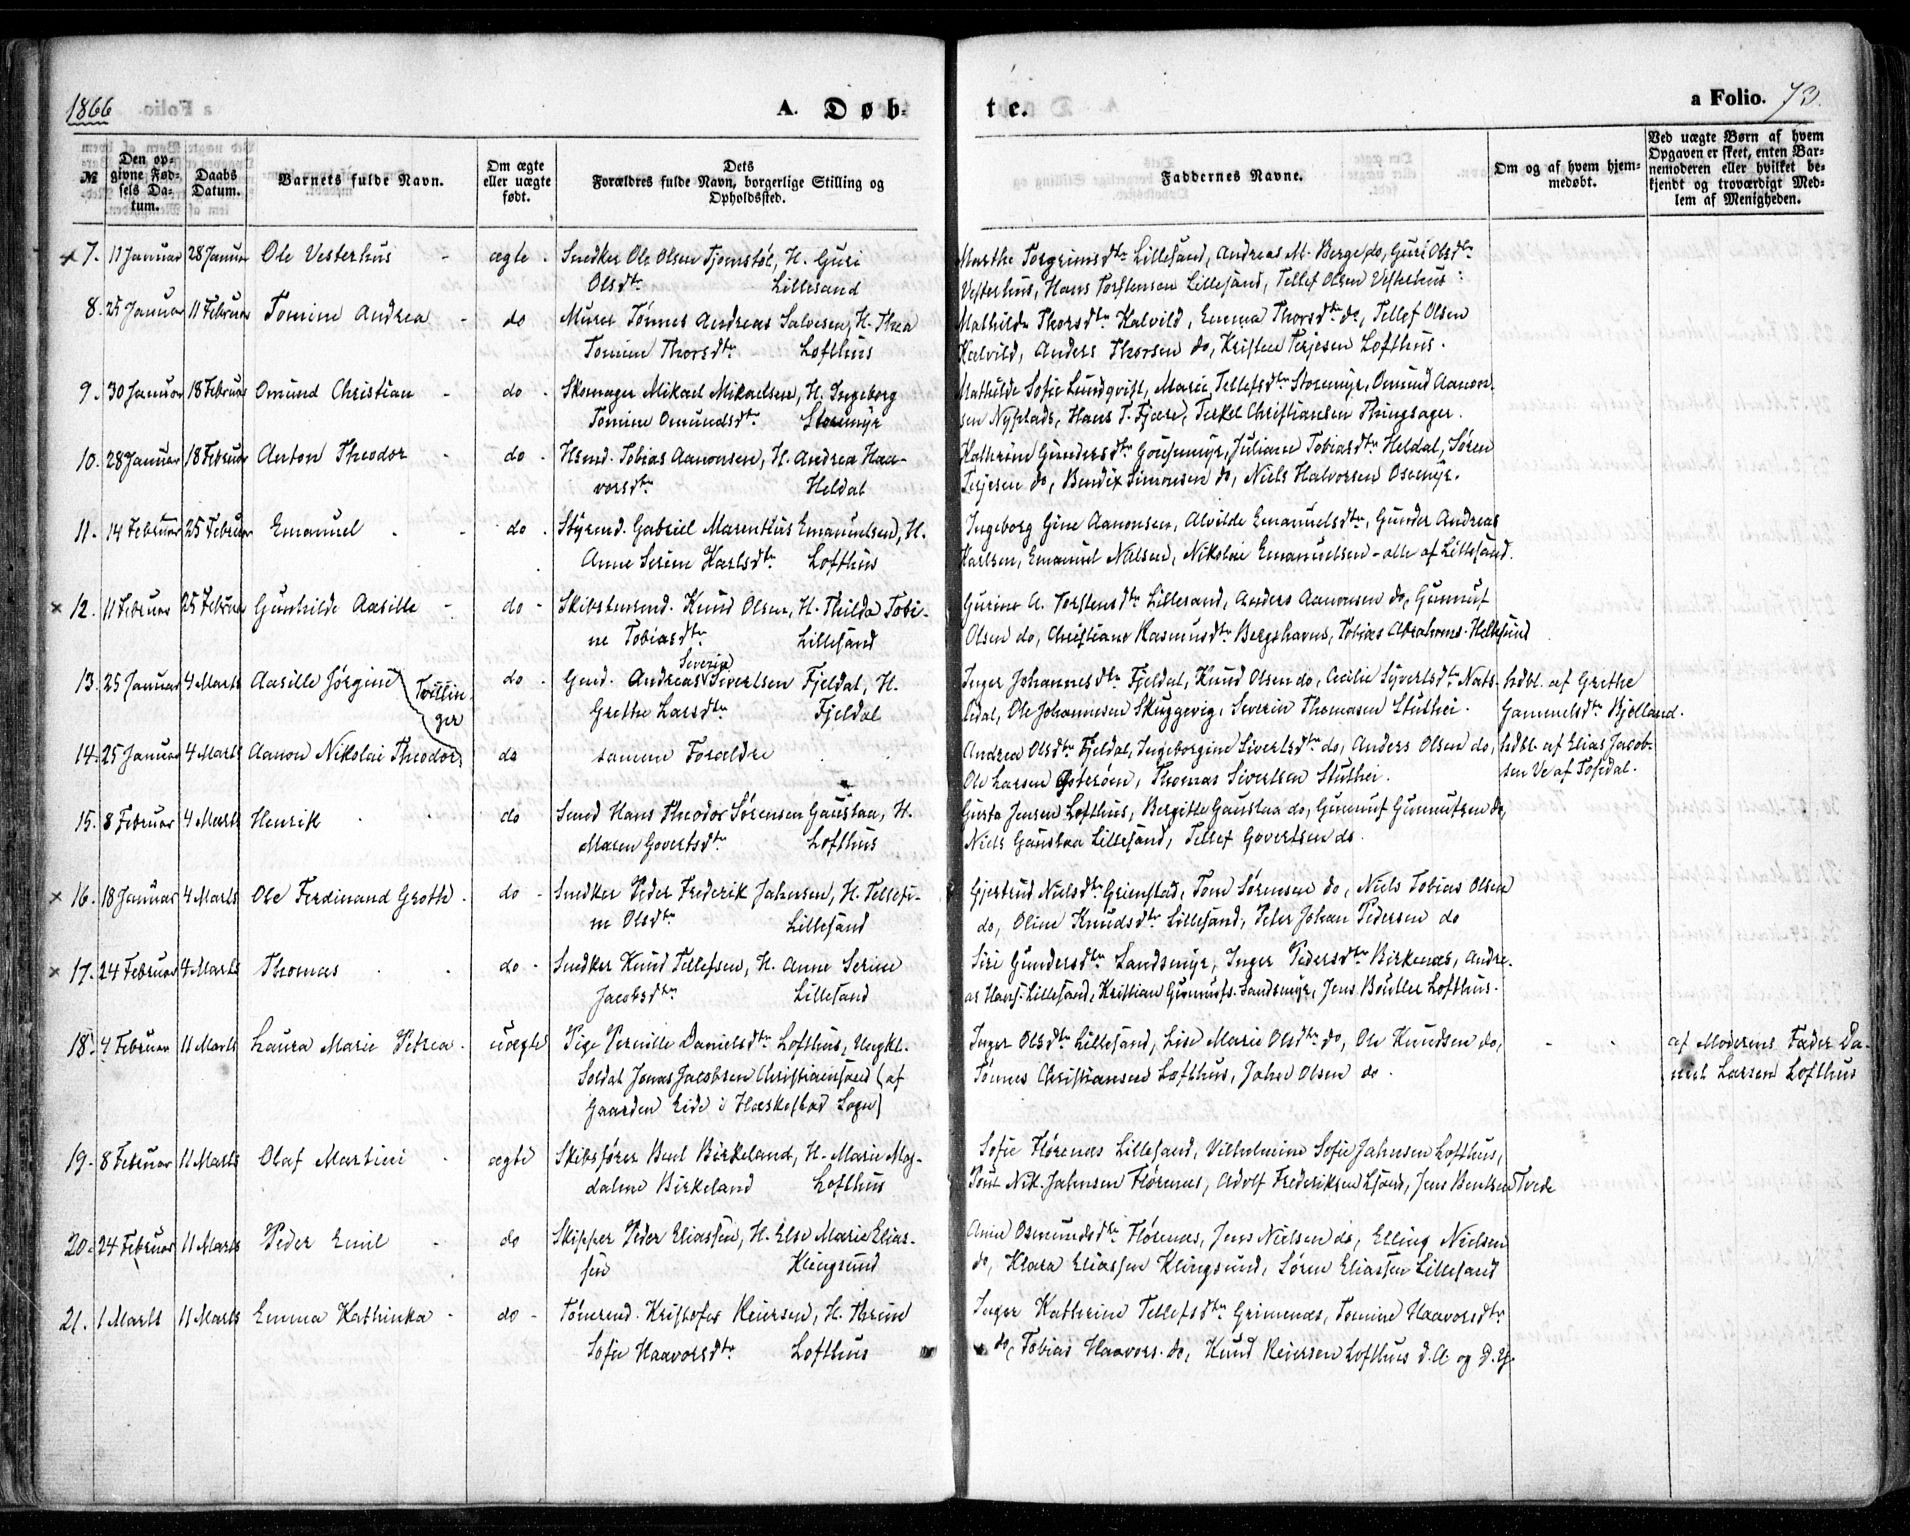 1866 A. Døb- te. a Folio. 73.
№ Den opgivne Fødsels Datum. Daabs Datum. Barnets fulde Navn. Om ægte eller uægte født. Dets Forældres fulde Navn, borgerlige Stilling og Opholdssted. Faddernes Navne. Om og af hvem hjemmedøbt. Ved uægte Børn af hvem Opgaven er skeet, enten Barnemoderen eller hvilket bekjendt og troværdigt Medlem af Menigheden.
7. 11 Januar 28 Januar Ole Vesterhus - ægte - Snedker Ole Olsen Tjomstøl, H. Guri Marthe Torgrimsdtr Lillesand, Andreas M. Berge do, Guri Olsdtr
Olsdtr Lillesand Vesterhus, Hans Torstensen Lillesand, Tellef Olsen Vesterhus
8. 25 Januar 11 Februar Tomine Andrea - do Murer Tønnes Andreas Salvesen, H. Thea Mathilde Thorsdtr Kalvild, Emma Thorsdtr do, Tellef Olsen
Tomine Thorsdtr Lofthus Kalvild, Anders Thorsen do, Kristen Terjesen Lofthus.
9. 30 Januar 18 Februar Omund Christian - do - Skomager Mikael Mikaelsen, H. Ingeborg Mathilde Sofie Lundqvist, Marie Tellefsdtr Storemyr, Omund Aanon-
Tomine Omundsdtr Storemyr sen Nyplads, Hans T. Fjære, Terkel Christiansen Thingsager.
10. 28 Januar 18 Februar Anton Theodor - do - Hsmd. Tobias Aanonsen, H. Andrea Haa- Kathrine Gundersdtr Gousemyr, Juliane Tobiasdtr Heldal, Søren
vorsdtr Heldal Terjesen do, Bendix Simonsen do, Niels Halvorsen Osemyr.
11. 14 Februar 25 Februar Emanuel - do - Styrmd. Gabriel Marentius Emanuelsen, H. Ingeborg Gine Aanonsen, Alvilde Emanuelsdtr, Gunder Andreas
Anne Serine Karlsdtr Lofthus Karlsen, Emanuel Nielsen, Nikolai Emanuelsen - alle af Lillesand.
× 12. 11 Februar 25 Februar Gunhilde Aasille - do - Skibstømmd. Knud Olsen, H. Thilda Tobi- Gurine A. Torstensdtr Lillesand, Anders Aanonsen do, Gunnuf
ne Tobiasdtr Lillesand Olsen do, Christiane Rasmusdtr Bergshavn, Tobias Abrahams. Hellesund
13. 25 Januar 4 Marts Aasille Jørgine Tvillin- do - Gmd. Andreas Severin Sivertsen Fjeldal, H. Inger Johannesdtr Fjeldal, Knud Olsen do, Cecilie Syvertsdtr Nats- hdbt. af Grethe
ger Grethe Larsdtr Fjeldal Ole Johannesen Skuggevig, Severin Thomasen Stuthei. Gammelsdtr Bjelland.
14. 25 Januar 4 Marts Aanon Nikolai Theodor do samme Forældre Andrea Olsdtr Fjeldal, Ingeborgine Sivertsdtr do, Anders Olsen do, hdbt. af Elias Jacob-
Ole Larsen Østerøen, Thomas Sivertsen Stuthei. sen Ve af Tofsdal.
15. 8 Februar 4 Marts Henrik do Smed Hans Theodor Sørensen Gaustaa, H. Gusta Jensen Lofthus, Bergitte Gaustaa do, Gunnuf Gunnufsen do,
Maren Govertsdtr Lofthus Niels Gaustaa Lillesand, Tellef Govertsen do.
× 16. 18 Januar 4 Marts Ole Ferdinand Groth - do - Snedker Peder Frederik Jahnsen, H. Tellefi- Gjertrud Nielsdtr Grimstad, Tom Sørensen do, Niels Tobias Olsen
ne Olsdtr Lillesand do, Oline Knudsdtr Lillesand, Peter Johan Pedersen do
× 17. 24 Februar 4 Marts Thomas - do - Snedker Knud Tellefsen, H. Anne Serine Siri Gundersdtr Sandsmyr, Inger Pedersdtr Birkenæs, Andre-
Jacobsdtr Lillesand as Hans. Lillesand, Kristian Gunnufs. Sandsmyr, Jens Bentler Lofthus.
18. 4 Februar 11 Marts Laura Marie Petrea - uægte Pige Pernille Danielsdtr Lofthus, Ungkl. Inger Olsdtr Lillesand, Lise Marie Olsdtr do, Ole Knudsen do, af Moderens Fader Da-
Soldat Jonas Jacobsen Christiansand (af Tønnes Christiansen Lofthus, Johan Olsen do. niel Larsen Lofthus
Gaarden Eide i Hæskestad Sogn)
19. 8 Februar 11 Marts Olaf Martin - ægte Skibsfører Bent Birkeland, H. Marie Mag- Sofie Hørenæs Lillesand, Vilhelmine Sofie Jahnsen Lofthus,
dalene Birkeland Lofthus Nik. Jahnsen Flørenæs, Adolf Frederiksen Lsand, Jens Bentsen Tvede
20. 24 Februar 11 Marts Peder Emil - do Skipper Peder Eliassen, H. Else Marie Elias- Anne Osmundsdtr Flørenæs, Jens Nielsen do, Elling Nielsen
sen Klingsund do, Klara Eliassen Klingsund, Søren Eliassen Lillesand
21. 1 Marts 11 Marts Emma Kathinka - do - Tømrmd. Kristofer Reiersen, H. Thrine Inger Kathrine Tellefsdtr Grimenæs, Tomine Haavorsdtr
Sofie Haavorsdtr Lofthus do, Tobias Haavors. do, Knud Reiersen Lofthus d.Æ og D.Y.